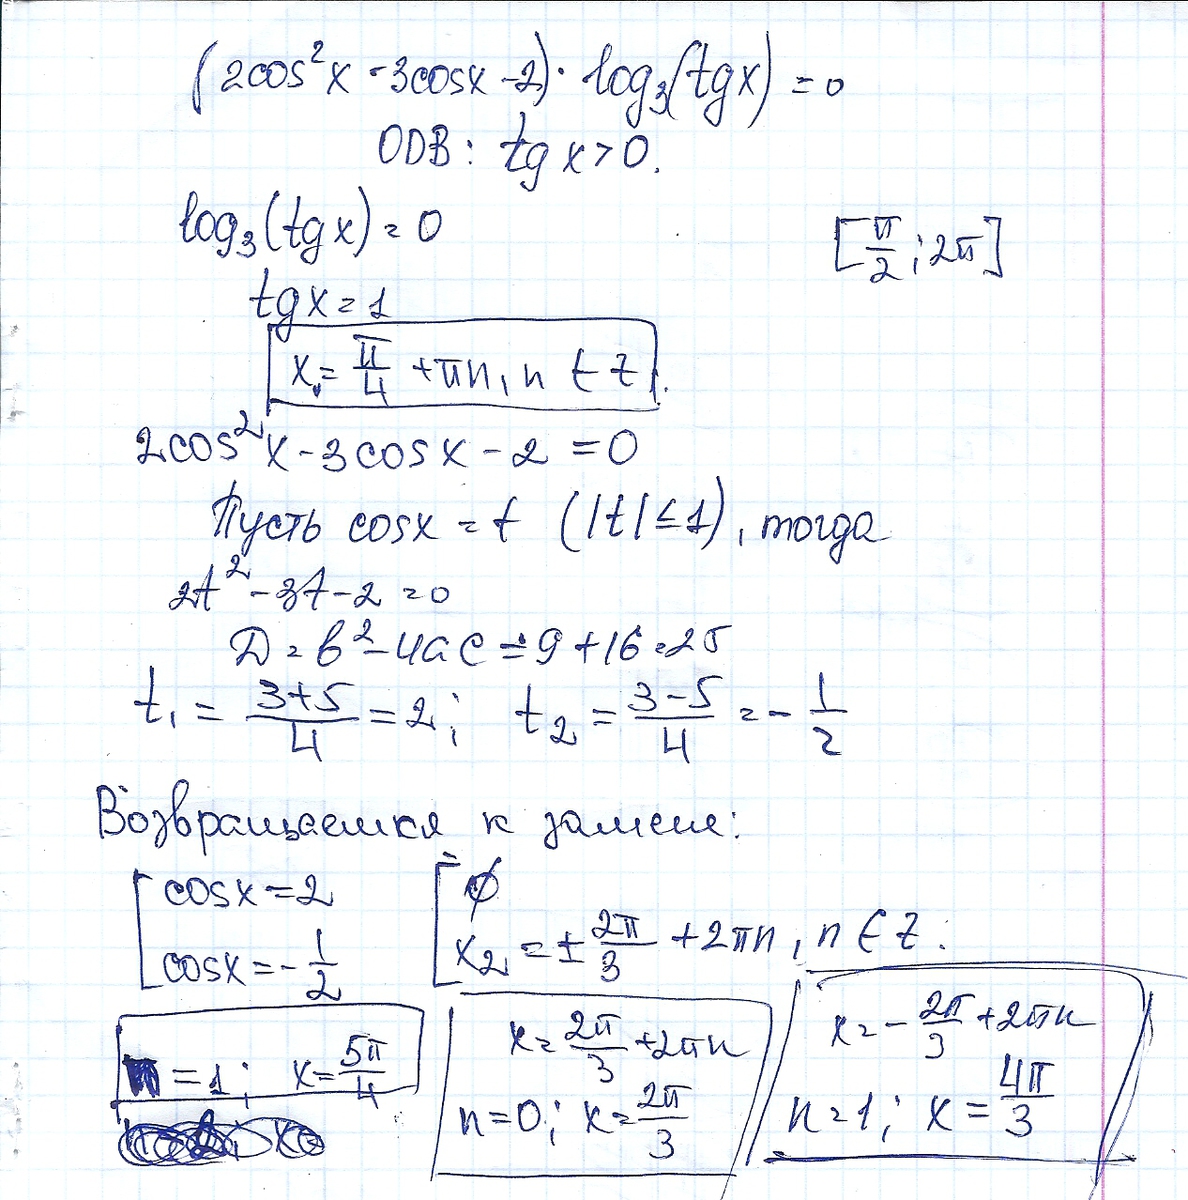 (2cos²x - 3cosx - 2) · log₃(tgx) = 0
ОДВ: tg x > 0.
log₃(tgx) = 0
[π/2; 2π]
tgx = 1
x₁ = π/4 + πn, n ∈ Z.
2cos²x - 3cosx - 2 = 0
Пусть cosx = t (|t| ≤ 1), тогда
2t² - 3t - 2 = 0
D = b² - 4ac = 9 + 16 = 25
t₁ = (3+5)/4 = 2; t₂ = (3-5)/4 = -1/2
Возвращаемся к замене:
[ cosx = 2 [ ∅
cosx = -1/2 x₂ = ± 2π/3 + 2πn, n ∈ Z.
n = 1; x = 5π/4
x = 2π/3 + 2πn
n = 0; x = 2π/3
x = - 2π/3 + 2πn
n = 1; x = 4π/3